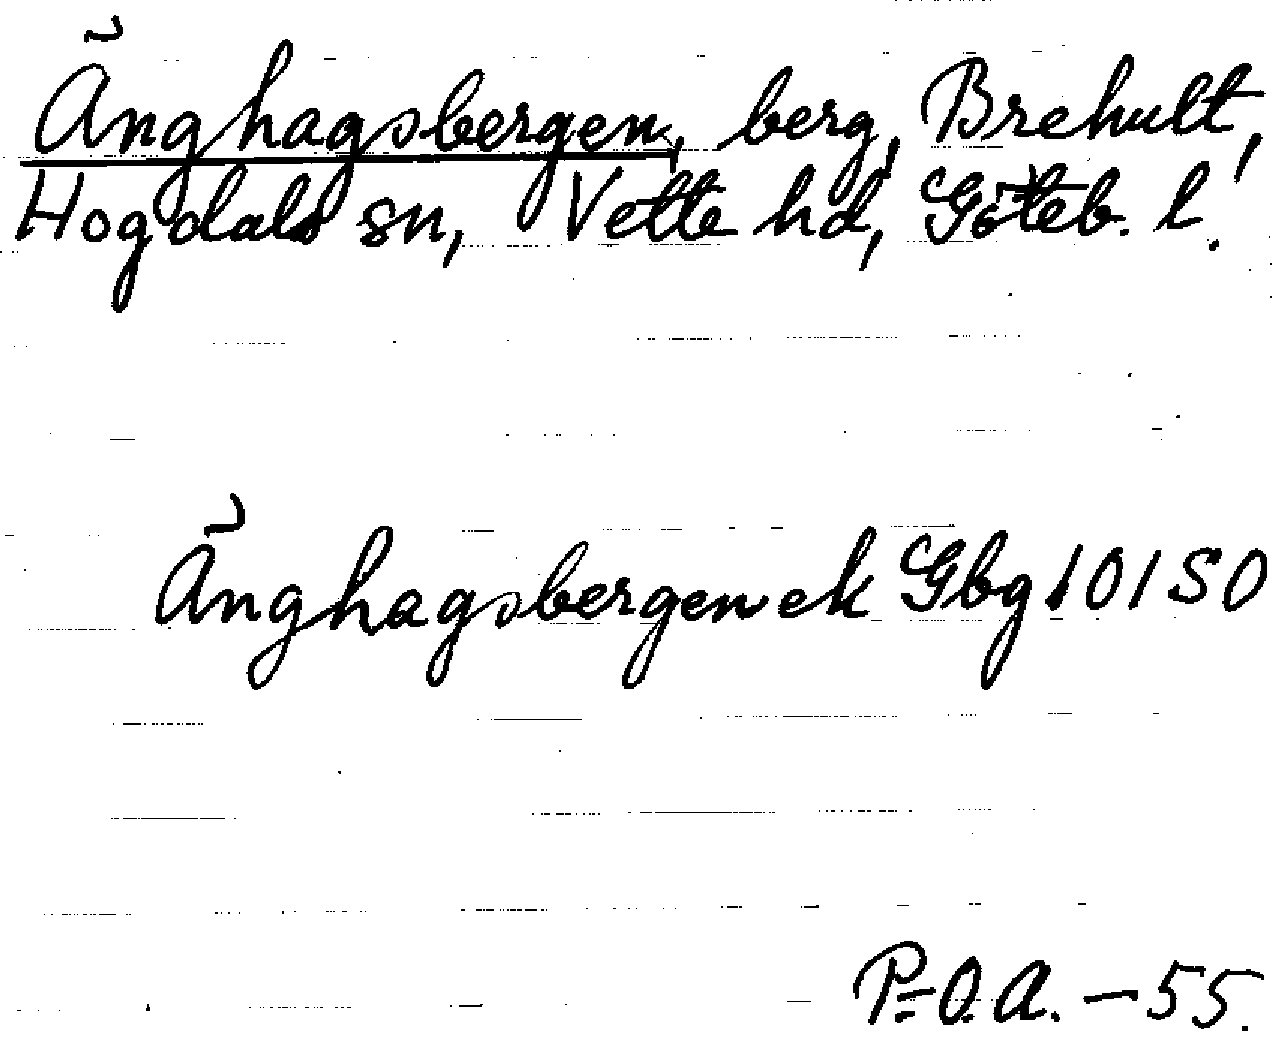 Änghagsbergen, berg, Brehult,
Hogdals sn, Vette hd, Göteb. l.
Änghagsbergen ek Gbg 10150
P=O.A. -55.